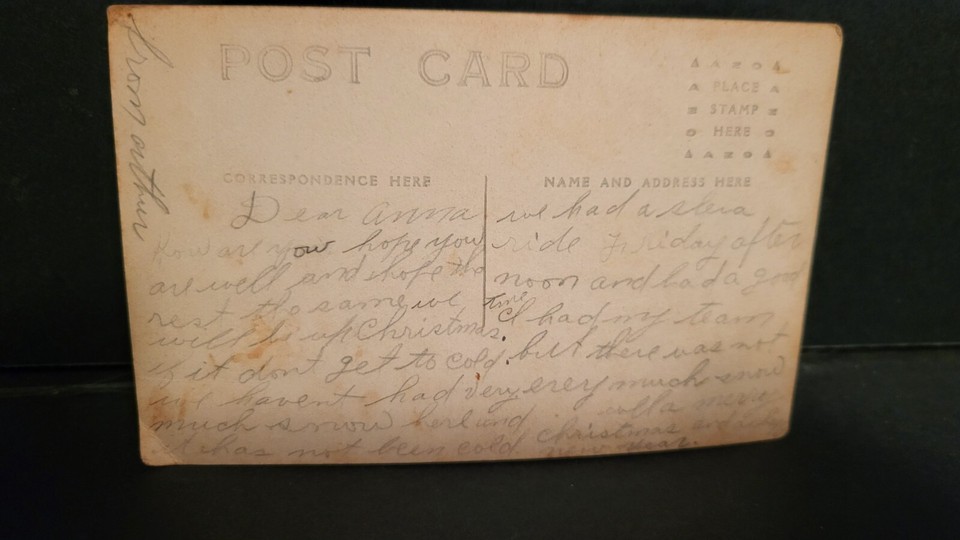 from arthur
POST CARD
PLACE
STAMP
HERE
CORRESPONDENCE HERE
Dear anna
how are you hope you
are well and hope the
rest the same we
will be up Christmas.
if it dont get to cold.
we havent had very
much snow here and
it has not been cold
NAME AND ADDRESS HERE
we had a
ride Friday after
noon and had a good
time
I had my team
but there was not
much snow
merry
christmas and
new year.